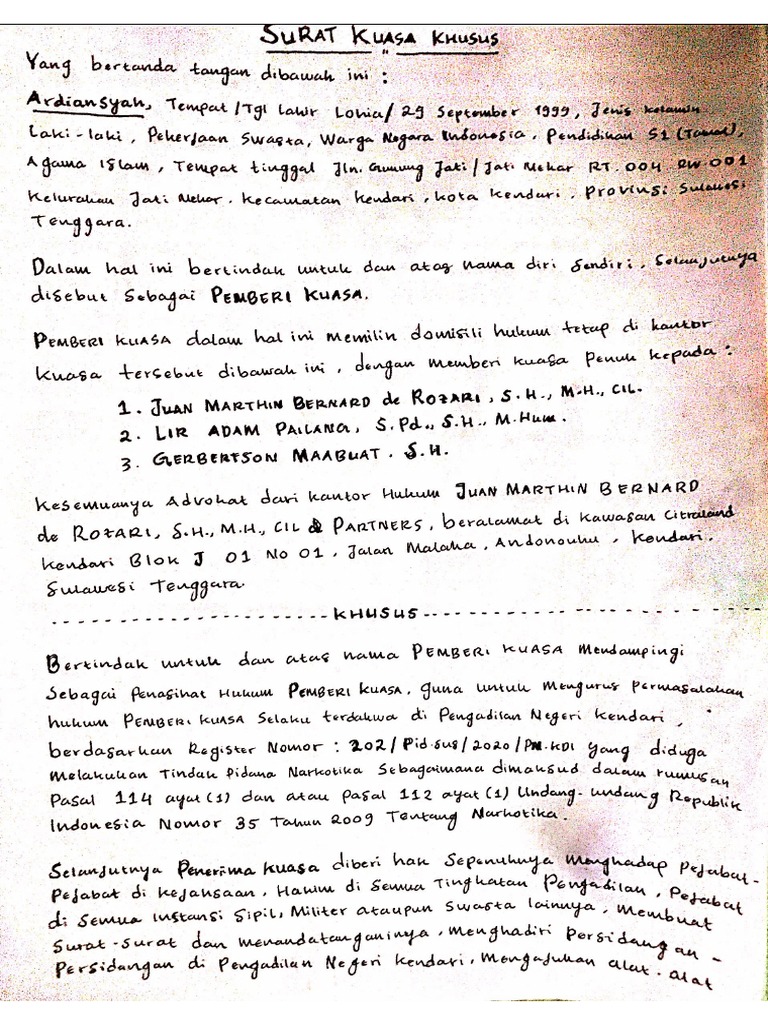 SURAT KUASA KHUSUS
Yang bertanda tangan dibawah ini :
Ardiansyah, Tempat/Tgl Lahir Lohia/29 September 1999, Jenis kelamin
Laki-laki, Pekerjaan Swasta, Warga Negara Indonesia, Pendidikan S1 (Tamat),
Agama Islam, Tempat tinggal Jln. Gunung Jati/Jati Mekar RT.004 RW.001
Kelurahan Jati Mekar. Kecamatan Kendari, Kota Kendari. Provinsi Sulawesi
Tenggara.
Dalam hal ini bertindak untuk dan atas nama diri sendiri, Selanjutnya
disebut sebagai PEMBERI KUASA.
PEMBERI KUASA dalam hal ini memilih domisili hukum tetap di kantor
Kuasa tersebut dibawah ini, dengan memberi kuasa Penuh kepada :
1. JUAN MARTHIN BERNARD de ROZARI, S.H., M.H., CIL.
2. LIR ADAM PAILANG, S.Pd., S.H., M.Hum.
3. GERBERTSON MAABUAT. S.H.
Kesemuanya Advokat dari kantor Hukum JUAN MARTHIN BERNARD
de ROZARI, S.H., M.H., CIL & PARTNERS, beralamat di kawasan Citraland
Kendari Blok J 01 No 01, Jalan Malaka, Andonouhu, Kendari.
Sulawesi Tenggara.
----------------------- KHUSUS -----------------------
Bertindak untuk dan atas nama PEMBERI KUASA Mendampingi
Sebagai Penasihat Hukum PEMBERI KUASA, guna untuk Mengurus Permasalahan
hukum PEMBERI KUASA Selaku terdakwa di Pengadilan Negeri Kendari,
berdasarkan Register Nomor : 202/Pid.sus/2020/PN.KDI yang diduga
Melakukan Tindak Pidana Narkotika Sebagaimana dimaksud dalam rumusan
Pasal 114 ayat (1) dan atau Pasal 112 ayat (1) Undang-undang Republik
Indonesia Nomor 35 Tahun 2009 Tentang Narkotika.
Selanjutnya Penerima Kuasa diberi hak Sepenuhnya Menghadap Pejabat-
Pejabat di Kejaksaan, Hakim di Semua Tingkatan Pengadilan, Pejabat
di Semua Instansi Sipil, Militer ataupun Swasta lainnya, Membuat
Surat-Surat dan menandatanganinya, Menghadiri Persidangan-
Persidangan di Pengadilan Negeri Kendari, Mengajukan alat-alat